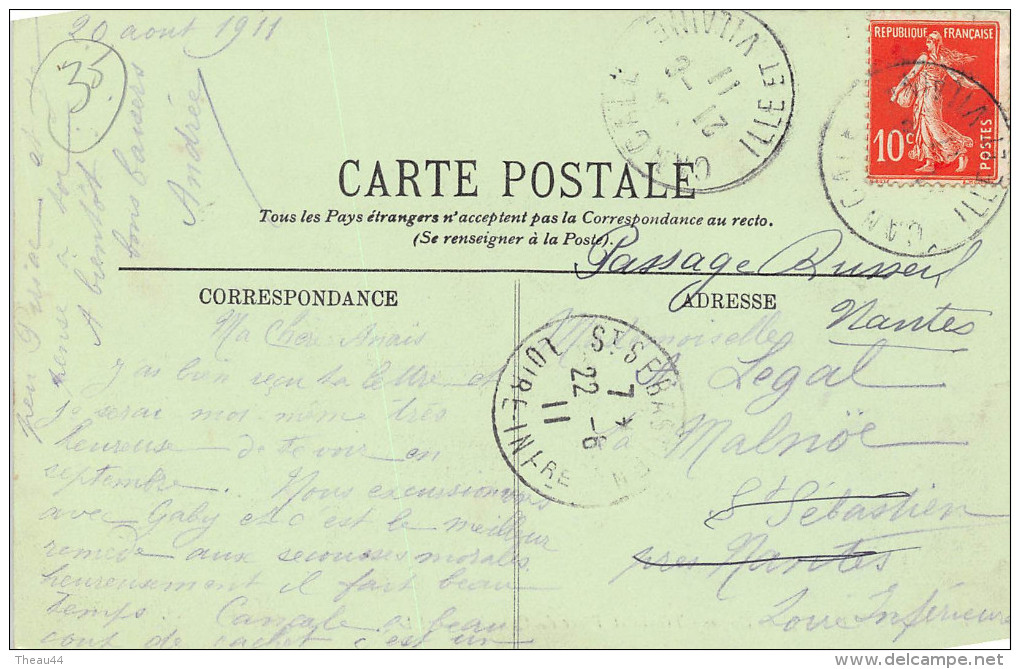 20 aout 1911
35
RÉPUBLIQUE FRANÇAISE
10c
POSTES
CANCALE
21 -8
11
ILLE-ET-VILAINE
CANCALE
ILLE-ET-VILAINE
CARTE POSTALE
Tous les Pays étrangers n'acceptent pas la Correspondance au recto.
(Se renseigner à la Poste).
CORRESPONDANCE
Ma Chère Anaïs
J'ai bien reçu ta lettre et
je serai moi même très
heureuse de te voir en
septembre. Nous excursionnons
avec Gaby et c'est le meilleur
remède aux secousses morales
heureusement il fait beau
temps. Cancale a beau
cout de cachet c'est un
peu et
pense à toi
A bientôt
bons baisers
Andrée
ADRESSE
Passage Russeil
Nantes
Mademoiselle
A Legal
La Malnöe
St Sébastien
près Nantes
Loire Inférieure
ST SEBASTIEN
7 *
22 -8
11
LOIRE-INFRE
Theau44
delcampe.net